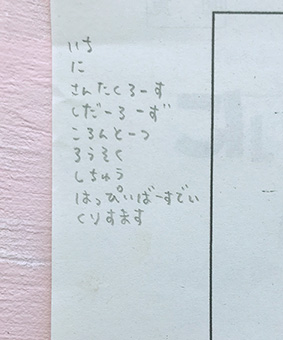 いち
に
さんたくろーす
しだーろーず
ころんとーつ
ろうそく
しちゅう
はっぴぃばーすでぃ
くりすます